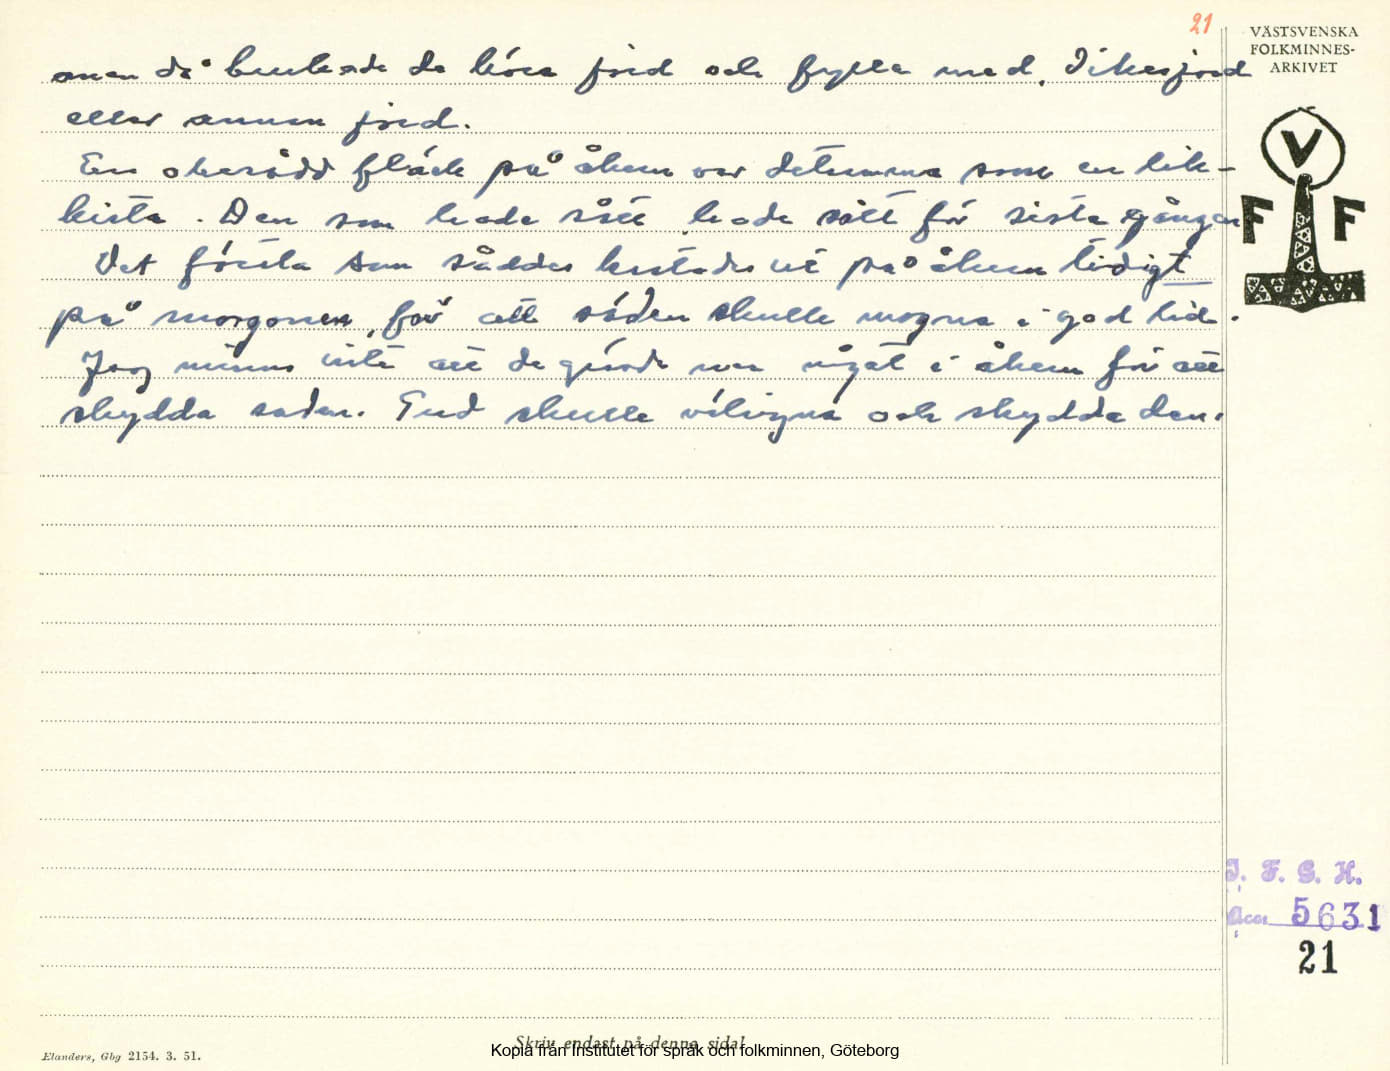 21
VÄSTSVENSKA
FOLKMINNES-
ARKIVET
men då brukade de köra jord och fylla med. Dikesjord
eller annan jord.
En obesådd fläck på åkern var detsamma som en lik-
kista. Den som hade sått hade sått för sista gången
Det första som såddes kastades ut på åkern tidigt
på morgonen, för att säden skulle mogna i god tid.
Jag minns inte att de gjorde när något i åkern för att
skydda säden. Gud skulle välsigna och skydda den.
V
F F
I. F. G. H.
Acc 5631
21
Skriv endast på denna sida!
Kopia från Institutet för språk och folkminnen, Göteborg
Elanders, Gbg 2154. 3. 51.